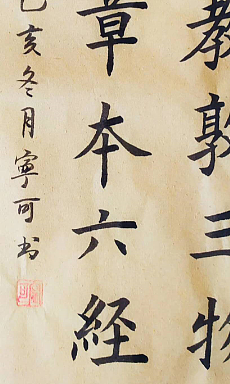 教敦三物
章本六经
己亥冬月寧可书